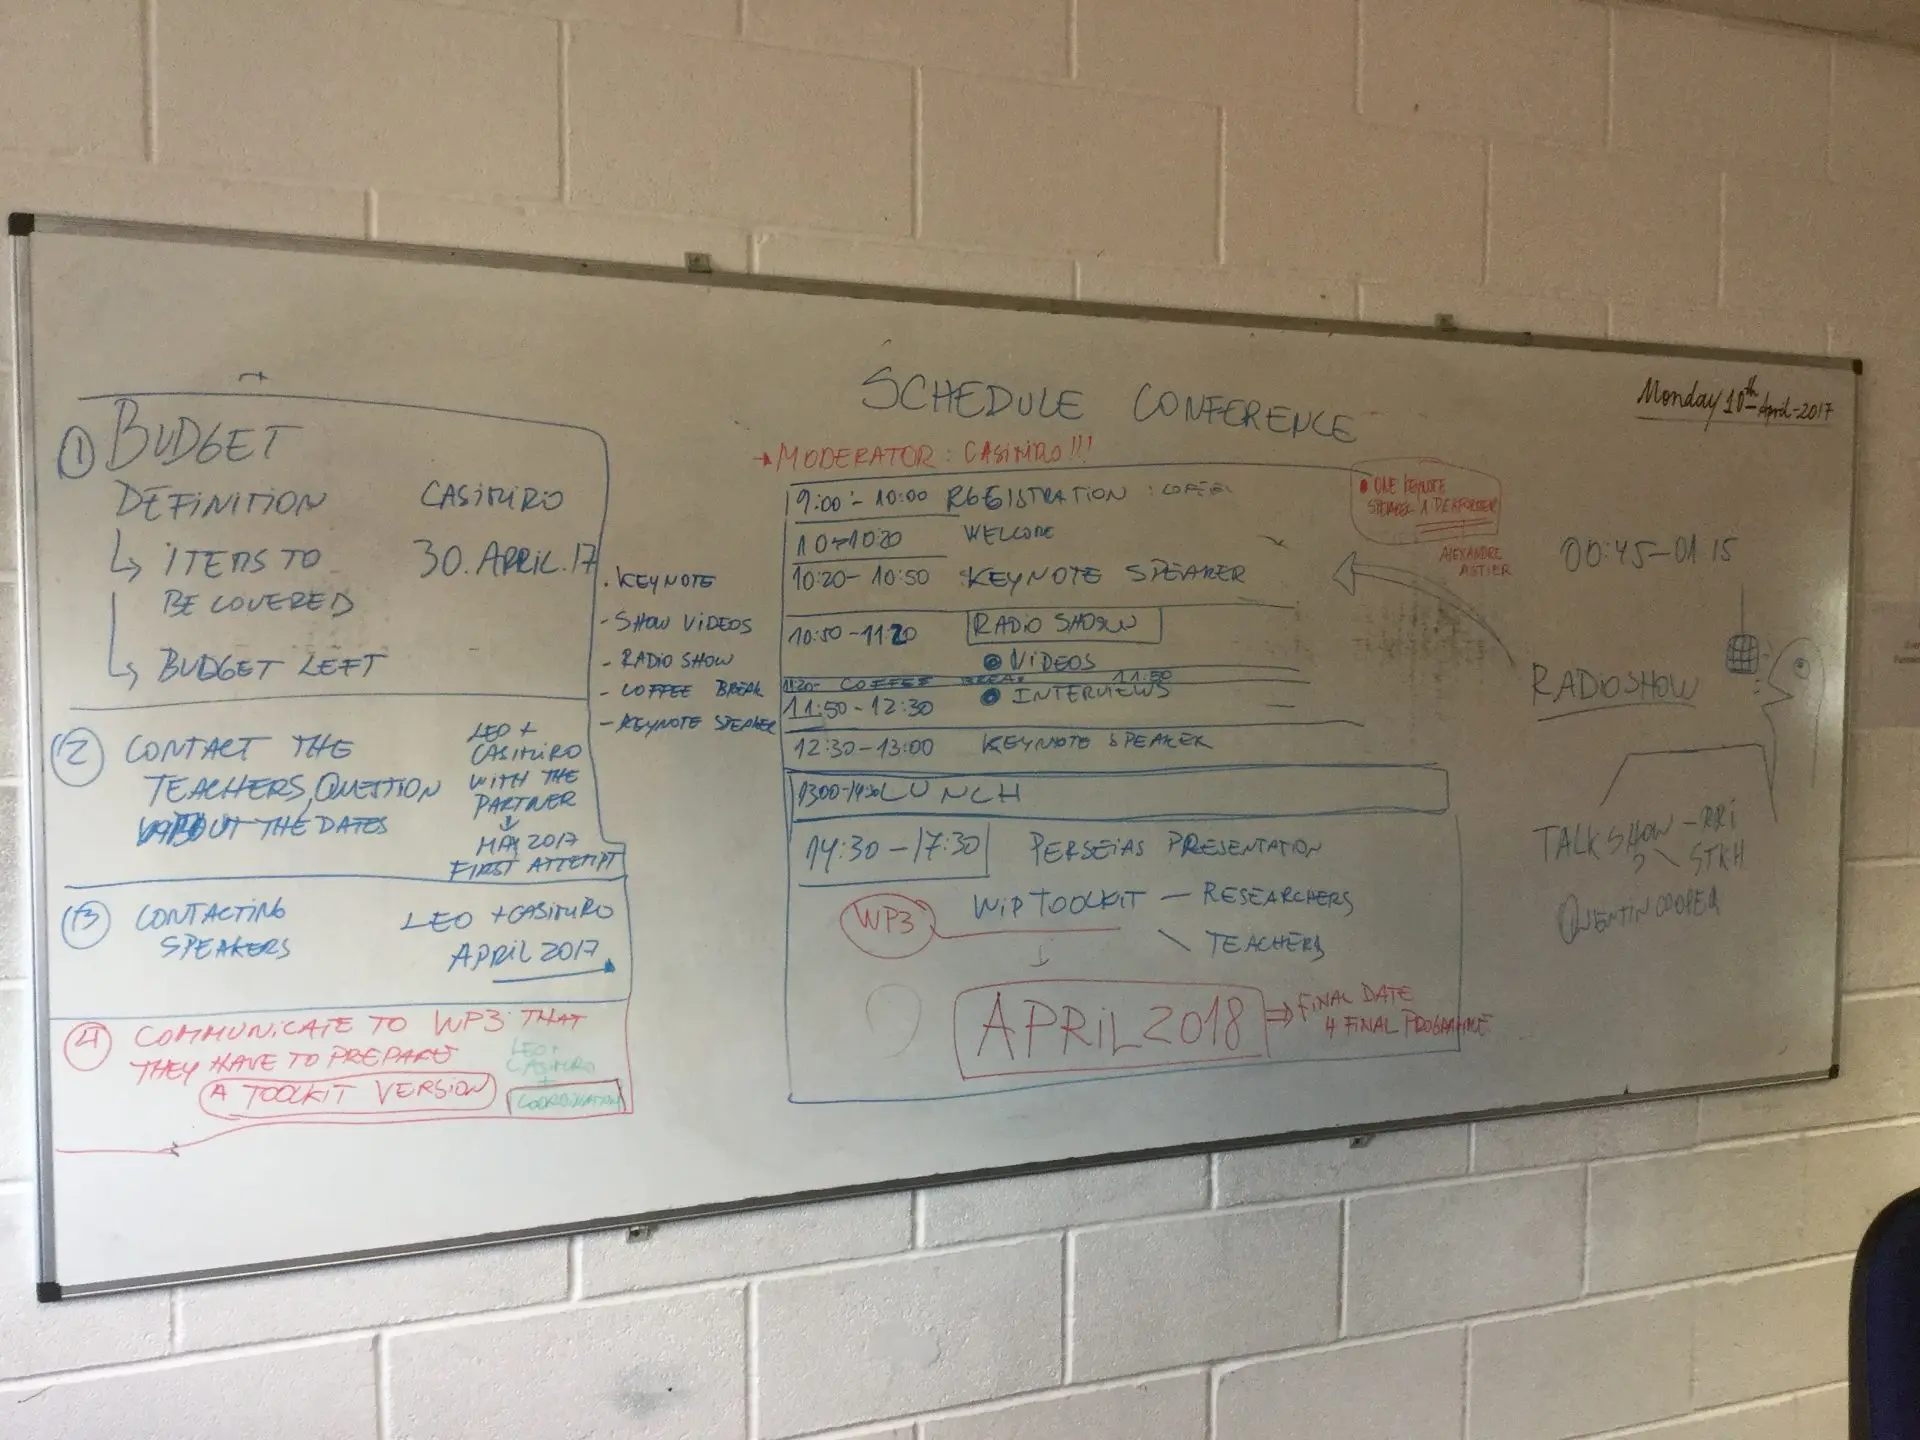 Monday 10th April-2017
SCHEDULE CONFERENCE
1 BUDGET
DEFINITION CASIMIRO
ITEMS TO 30.APRIL.17
BE COVERED
BUDGET LEFT
2 CONTACT THE
TEACHERS, QUESTION
THE DATES
LEO +
CASIMIRO
WITH THE
PARTNER
MAY 2017
FIRST ATTEMPT
3 CONTACTING
SPEAKERS
LEO + CASIMIRO
APRIL 2017
4 COMMUNICATE TO WP3 THAT
THEY HAVE TO PREPARE
A TOOLKIT VERSION
LEO +
CASIMIRO
+
COORDINATION
. KEYNOTE
- SHOW VIDEOS
- RADIO SHOW
- COFFEE BREAK
- KEYNOTE SPEAKER
MODERATOR: CASIMIRO!!!
9:00 - 10:00 REGISTRATION : COFFEE
10-10:20 WELCOME
10:20- 10:50 KEYNOTE SPEAKER
10:50-11:20 RADIO SHOW
VIDEOS
11:20- COFFEE BREAK 11:50
INTERVIEWS
11:50-12:30
12:30-13:00 KEYNOTE SPEAKER
1300-14:30 LUNCH
14:30-17:30 PERSEIAS PRESENTATION
WP3 WIP TOOLKIT - RESEARCHERS
TEACHERS
APRIL 2018 ⇒ FINAL DATE
4 FINAL PROGRAMME
ONE KEYNOTE
SPEAKER 1 PERFORMER
ALEXANDRE
ASTIER
00:45-01:15
RADIOSHOW
TALK SHOW - RRI
STKH
QUENTIN COOPER